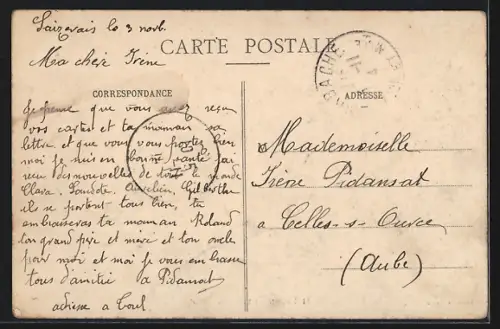 Saizerais le 3 novb.
CARTE POSTALE
Ma chère Irène
CORRESPONDANCE
Je pense que vous avez reçu
vos cartes et ta maman sa
lettre et que vous vous portez bien
moi je suis en bonne santé j'ai
reçu des nouvelles de tout le monde
Clara, Aurélien, Gilberthe
ils se portent tous bien, tu
embrasseras ta maman Roland
ton grand père et mère et ton oncle
pour moi et moi je vous embrasse
tous d'amitié A Pidansat
adresse a Toul
ADRESSE
Mademoiselle
Irène Pidansat
a Celles-s-Ource
(Aube)